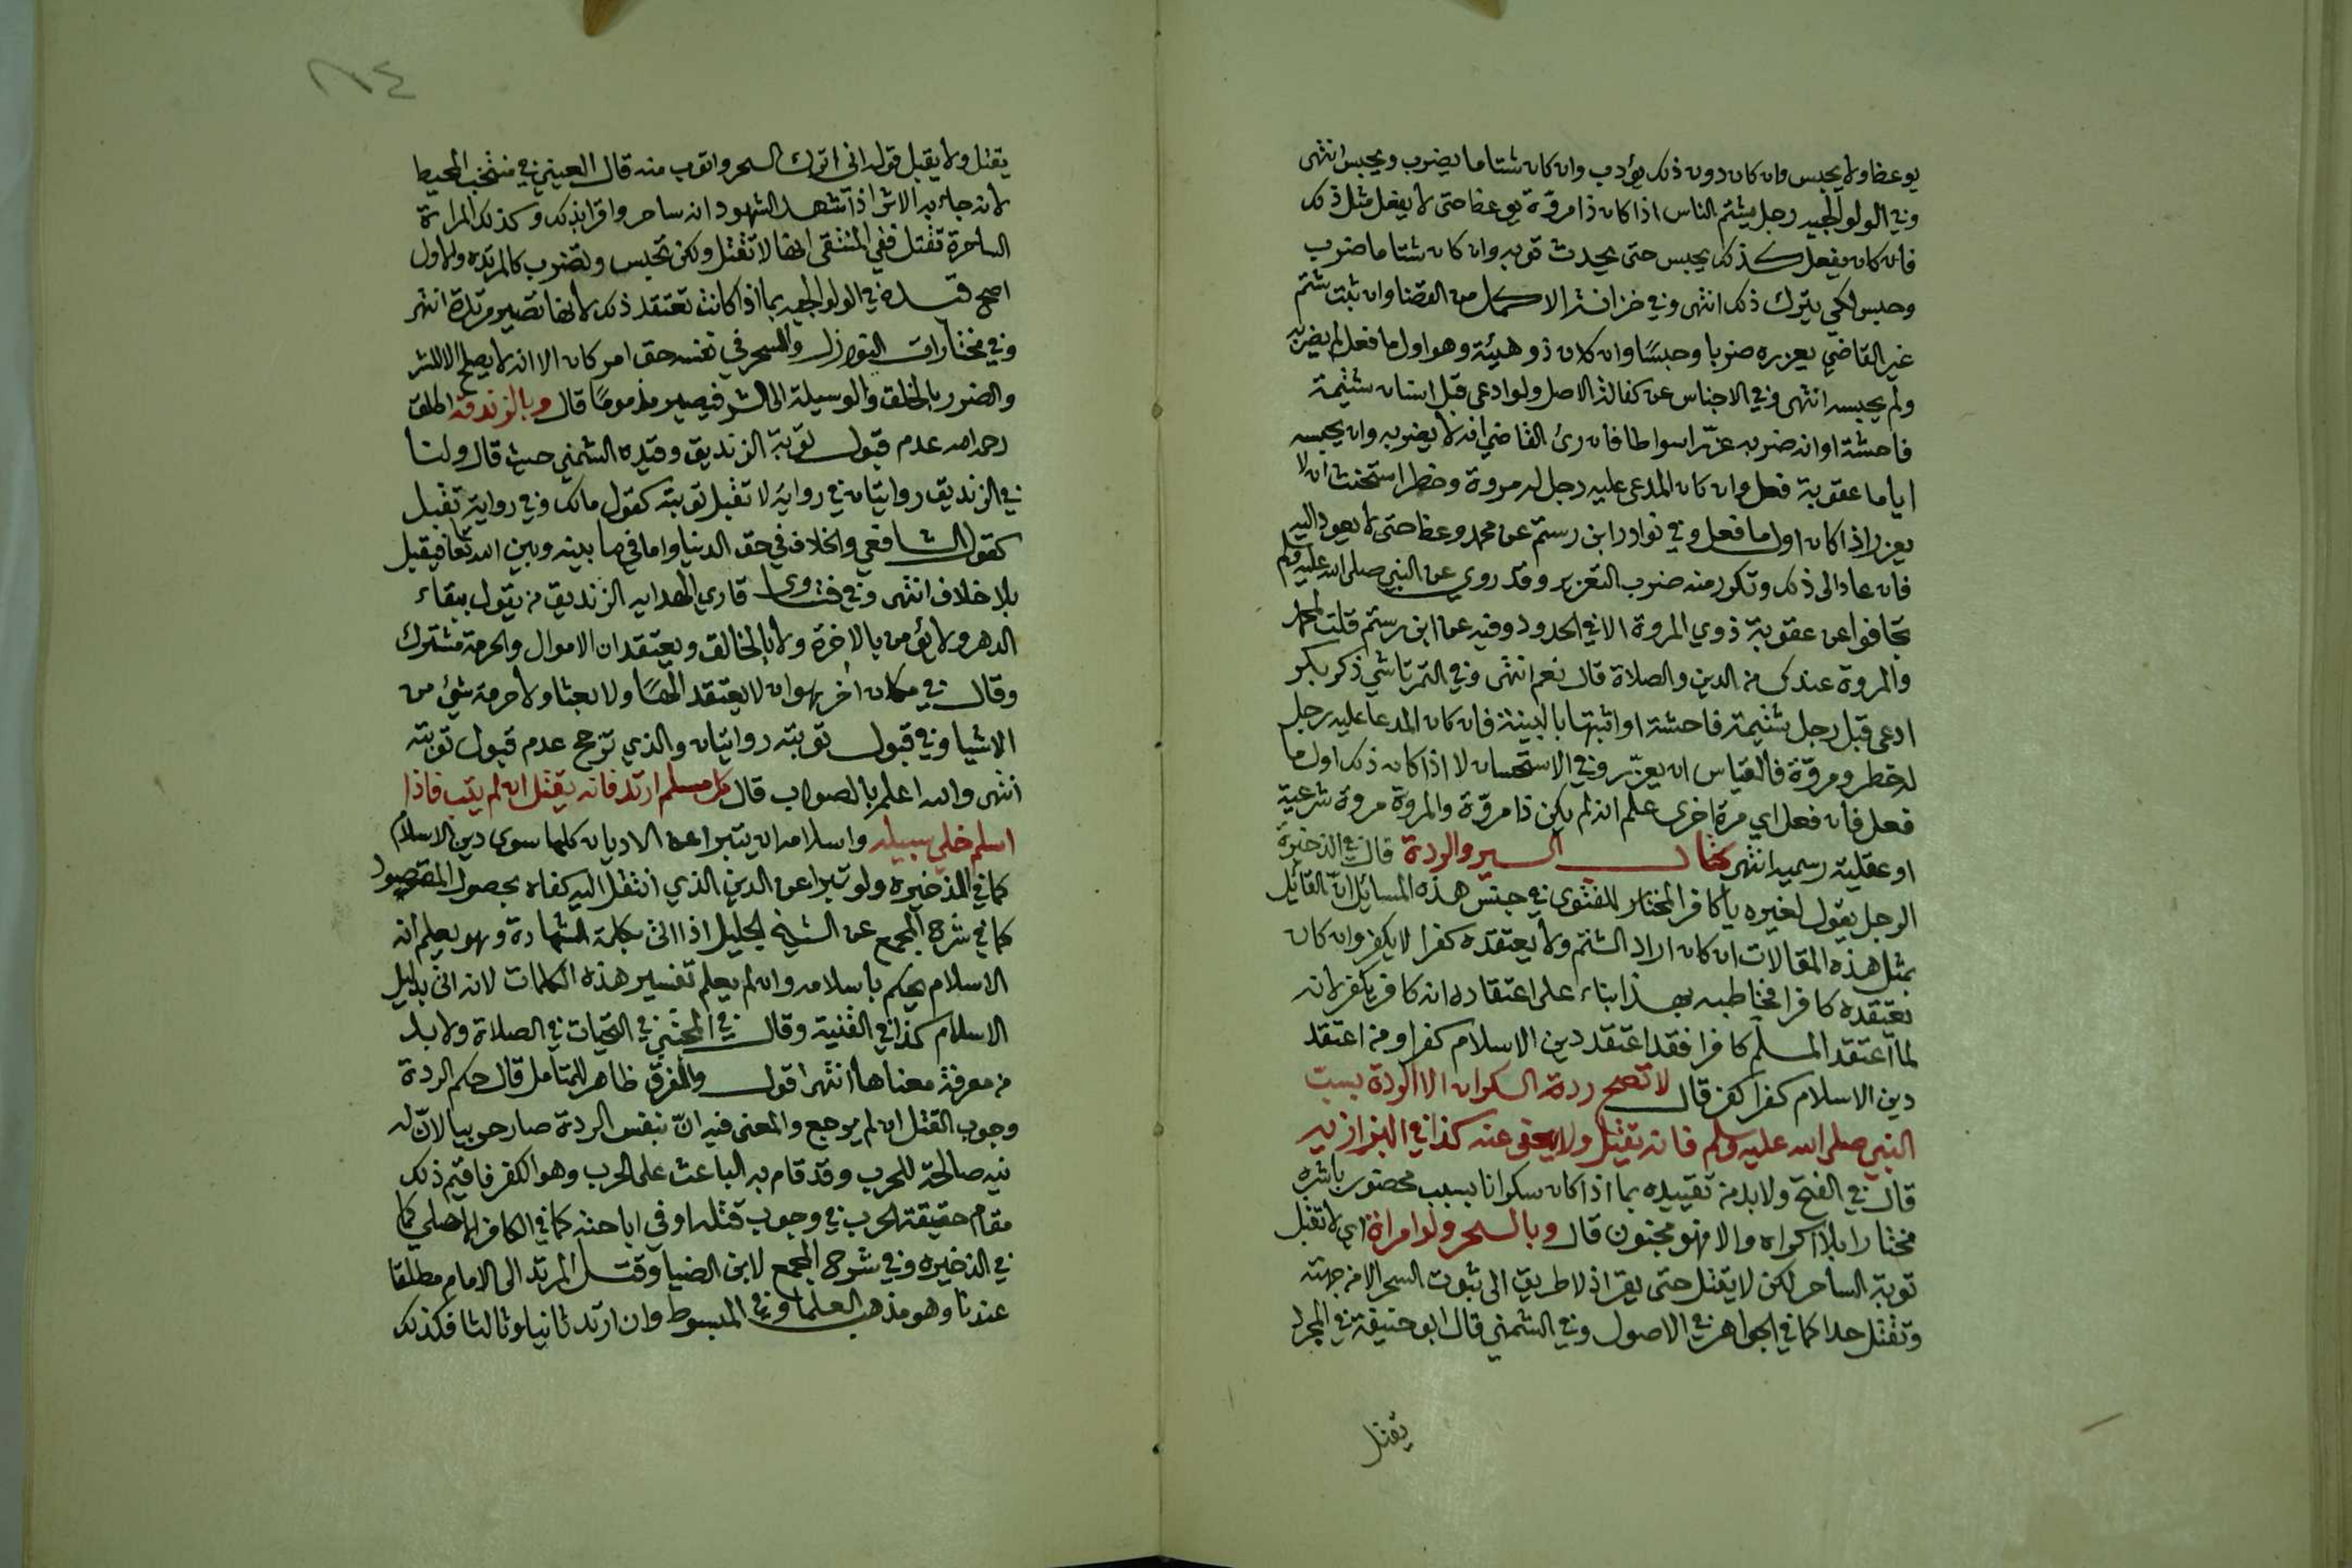 يوعظ ولا يحبس وان كان دون ذلك يؤدب وان كان شتاما يضرب ويحبس انتهى
وفي الولوالجيه رجل يشتم الناس اذا كان ذا مروّة يوعظ حتى لا يفعل مثل ذلك
فان كان يفعل كذلك يحبس حتى يحدث توبه وان كان شتاما ضرب
وحبس لكي يترك ذلك انتهى وفي خزانة الاكمل من القضا وان ثبت شتم
غير القاضي يعزره ضربا وحبسًا وان كان ذو هيئة وهو اول ما فعل لم يضربه
ولم يحبسه انتهى وفي الاجناس عن كفالة الاصل ولو ادعى قبل انسان شتيمة
فاحشة او انه ضربه عزّر اسواطا فان رئ القاضي انه لا يضربه وان يحبسه
اياما عقوبة فعل وان كان المدعى عليه رجل له مروة وخطر استحسنت ان لا
يعزر اذا كان اول ما فعل وفي نوادر ابن رستم عن محمد وعظ حتى لا يعود اليه
فان عاد الى ذلك وتكرر منه ضرب التعزير وقد روي عن النبي صلى الله عليه وسلم
تجافوا عن عقوبة ذوي المروة الا في الحدود وفيه عن ابن رستم قلت لمحمد
والمروة عندك من الدين والصلاة قال نعم انتهى وفي التمرتاشي ذكر بكر
ادعى قبل رجل شتيمة فاحشة او اثبتها بالبينة فان كان المدعا عليه رجل
له خطر ومروّة فالقياس ان يعزّر وفي الاستحسان لا اذا كان ذلك اول ما
فعل فان فعل اي مرة اخرى علم انه لم يكن ذا مروّة والمروة مروة شرعية
او عقلية رسميه انتهى كتاب السير والردة قال في الذخيرة
الرجل يقول لغيره يا كافر المختار للفتوى في جنس هذه المسائل انّ القائل
بمثل هذه المقالات ان كان اراد الشتم ولا يعتقده كفرا لا يكفر وان كان
يعتقده كافرا فخاطبه بهذا بناء على اعتقاده انه كافر يكفر لانه
لما اعتقد المسلم كافرا فقد اعتقد دين الاسلام كفرا ومن اعتقد
دين الاسلام كفرا كفر قال لا تصح ردة السكران الا الردة بسبّ
النبي صلى الله عليه وسلم فانه يقتل ولا يعفى عنه كذا في البزازيه
قال في الفتح ولا بد من تقييده بما اذا كان سكرانا بسبب محضور باشره
مختارا بلا اكراه والا فهو مجنون قال وبالسحر ولو امراة اي لا تقبل
توبة الساحر لكن لا يقتل حتى يقر اذ لا طريق الى ثبوت السحر الا من جهته
وتقتل حدا كما في الجواهر في الاصول وفي الشمني قال ابو حنيفة في المجرد
يقتل
٨٤
يقتل ولا يقبل قوله اني اترك السحر واتوب منه قال العيني في منتخب المحيط
لانه جاء به الاثر اذا شهد الشهود انه ساحر واقر بذلك وكذلك المراة
الساحرة تقتل ففي المنتقى انها لا تقتل ولكن تحبس وتضرب كالمرتده والاول
اصح قيده في الولوالجيه بما اذا كانت تعتقد ذلك لانها تصير مرتدة انتهى
وفي مختارات النوازل والسحر في نفسه حق امر كان الا انه لا يصلح الا للشر
والضرر بالخلق والوسيلة الى الشر فيصير مذمومًا قال وبالزندقة اطلق
رحمه الله عدم قبول توبة الزنديق وقيده الشمني حيث قال ولنا
في الزنديق روايتان في رواية لا تقبل توبته كقول مالك وفي رواية تقبل
كقول الشافعي والخلاف في حق الدنيا واما فيما بينه وبين الله تعا فيقبل
بلا خلاف انتهى وفي فتاوى قاري الهدايه الزنديق من يقول ببقاء
الدهر ولا يؤمن بالاخرة ولا بالخالق ويعتقد ان الاموال والحرمة مشترك
وقال في مكان اخر هو ان لا يعتقد الهًا ولا بعثا ولا حرمة شئ من
الاشيا وفي قبول توبته روايتان والذي ترجح عدم قبول توبته
انتهى والله اعلم بالصواب قال كل مسلم ارتد فانه يقتل ان لم يتب فاذا
اسلم خلي سبيله واسلامه ان يتبرا عن الاديان كلها سوى دين الاسلام
كما في الذخيره ولو تبرا عن الدين الذي انتقل اليه كفاه بحصول المقصود
كما في شرح المجمع عن الشيخ الجليل اذا اتى بكلمة الشهادة وهو يعلم انه
الاسلام يحكم باسلامه وان لم يعلم تفسير هذه الكلمات لانه اتى بدليل
الاسلام كذا في القنية وقال في المجتبى في التحيات في الصلاة ولا بد
من معرفة معناها انتهى اقول والفرق ظاهر للمتامل قال حكم الردة
وجوب القتل ان لم يرجع والمعنى فيه انّ بنفس الردة صار حربيا لانّ له
نيه صالحة للحرب وقد قام به الباعث على الحرب وهو الكفر فاقيم ذلك
مقام حقيقة الحرب في وجوب قتله او في اباحته كما في الكافر الاصلي كما
في الذخيره وفي شرح المجمع لابن الضيا وقتل المرتد الى الامام مطلقا
عندنا وهو مذهب العلما وفي المبسوط وان ارتد ثانيا وثالثا فكذلك